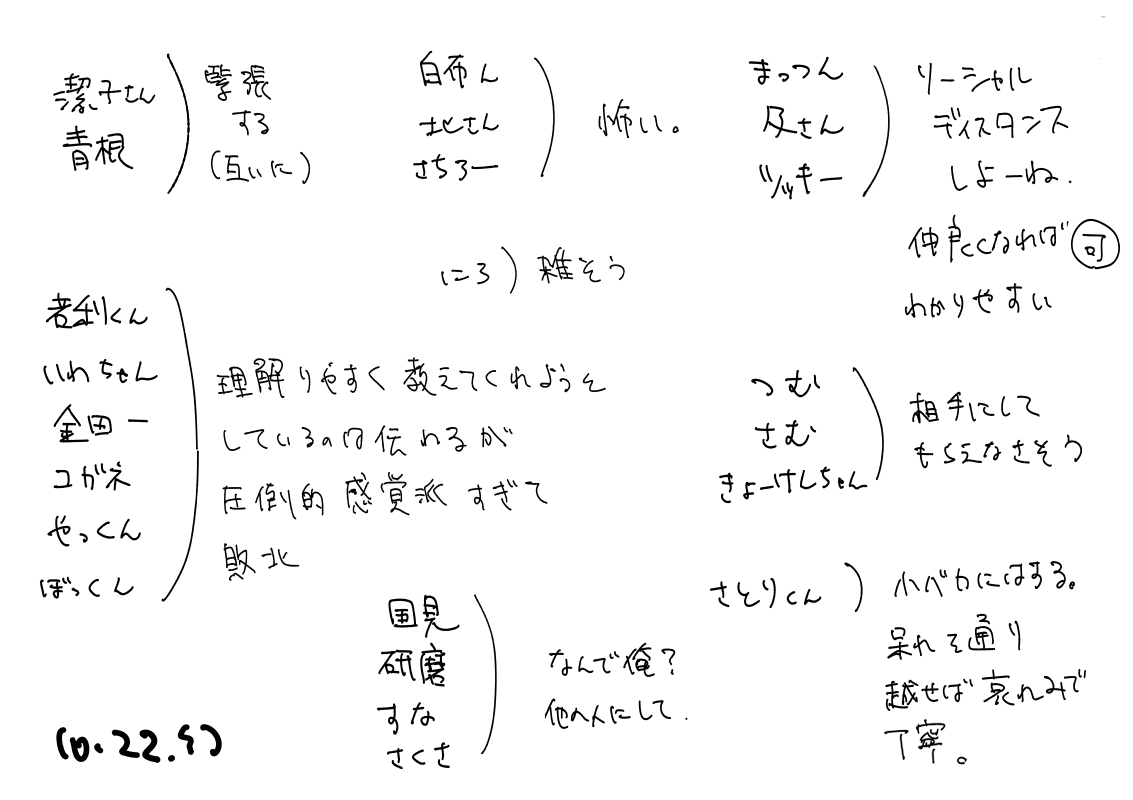 潔子さん
青根
緊張
する
(互いに)
白布ん
北さん
さちろー
怖い。
まっつん
及さん
ツッキー
ソーシャル
ディスタンス
しよーね.
仲良くなれば可
わかりやすい
にろ) 雑そう
若利くん
いわちゃん
金田一
コガネ
やっくん
ぼっくん
理解りやすく教えてくれようと
しているのは伝わるが
圧倒的感覚派すぎて
敗北
つむ
さむ
きょーけんちゃん
相手にして
もらえなさそう
国見
研磨
すな
さくさ
なんで俺?
他の人にして.
さとりくん
小バカにはする。
呆れを通り
越せば哀れみで
丁寧。